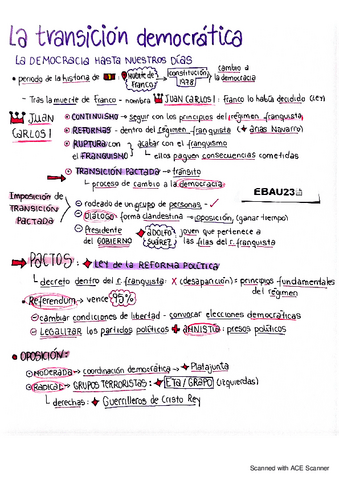 La transición democrática
LA DEMOCRACIA HASTA NUESTROS DÍAS
• periodo de la historia de → muerte de Franco → constitución 1978 → cambio a la democracia
- Tras la muerte de Franco - nombra JUAN CARLOS I : Franco lo había decidido (ley)
JUAN CARLOS I
CONTINUISMO → seguir con los principios del régimen franquista
REFORMAS - dentro del régimen franquista (Arias Navarro)
RUPTURA con el FRANQUISMO → acabar con el franquismo
ellos paguen consecuencias cometidas
TRANSICIÓN PACTADA → tránsito
proceso de cambio a la democracia
EBAU23
Imposición de TRANSICIÓN PACTADA
rodeado de un grupo de personas
Diálogo forma clandestina → oposición, (ganar tiempo)
Presidente del GOBIERNO → ADOLFO SUÁREZ joven que pertenece a las filas del r. franquista
PACTOS : LEY de la REFORMA POLÍTICA
decreto dentro del r. franquista X (desaparición) = principios fundamentales del régimen
• Referendum → vence 95%
cambiar condiciones de libertad - convocar elecciones democráticas
LEGALIZAR los partidos políticos + AMNISTÍA: presos políticos
• OPOSICIÓN:
MODERADA → coordinación democrática → Platajunta
RADICAL → GRUPOS TERRORISTAS: ETA / GRAPO (izquierdas)
derechas: Guerrilleros de Cristo Rey
Scanned with ACE Scanner